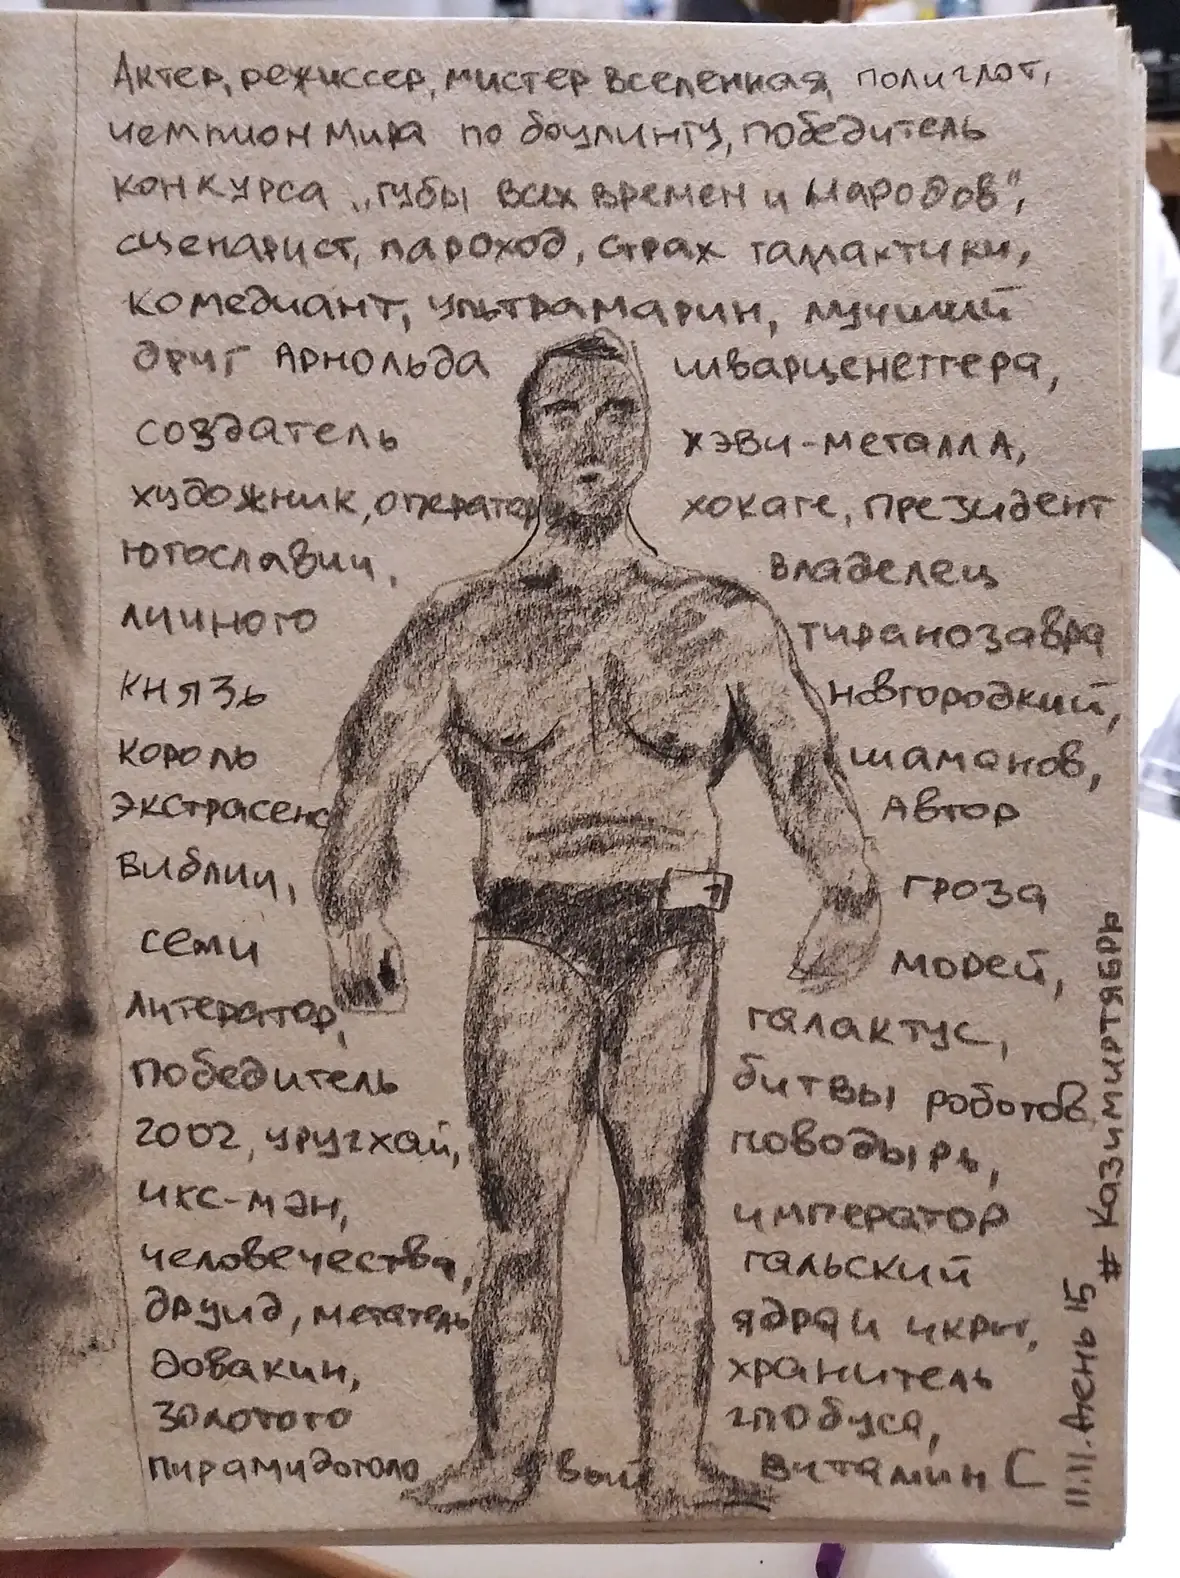 Актер, режиссер, мистер вселенная, полиглот,
чемпион мира по боулингу, победитель
конкурса „губы всех времен и народов",
сценарист, пароход, страх галлактики,
комедиант, ультрамарин, лучший
друг Арнольда шварценеггера,
создатель хэви-металла,
художник, оператор хокаге, президент
югославии, владелец
личного тиранозавра
князь новгородский,
король шаманов,
экстрасенс Автор
библии, гроза
семи морей,
литератор, галактус,
победитель битвы роботов
2002, уругхай, поводырь,
икс-мэн, император
человечества, гальский
друид, метатель ядра и икры,
довакин, хранитель
золотого глобуса,
пирамидоголовый витамин С
11.11. День 15 #Казимиртябрь